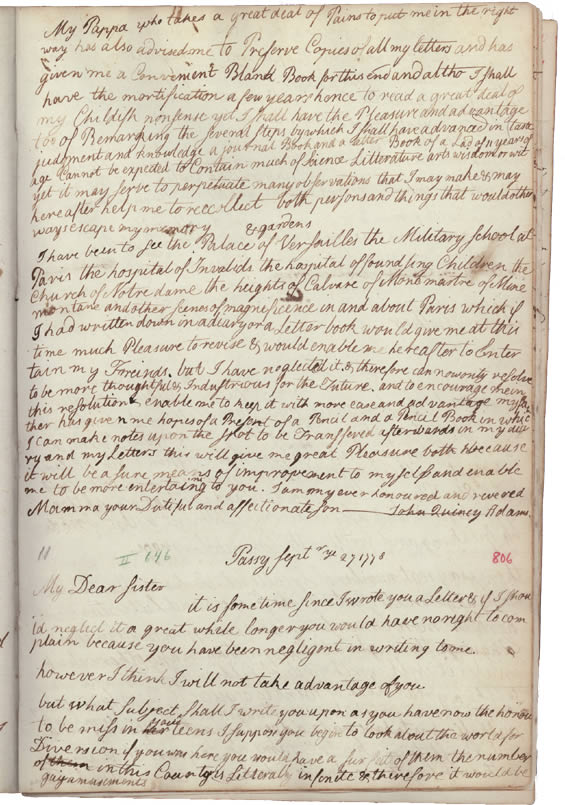 My Pappa who takes a great deal of Pains to put me in the right
way has also advised me to Preserve Copies of all my letters and has
given me a Convenient Blank Book for this end and altho I shall
have the mortification a few years hence to read a great deal of
my Childish nonsense yet I shall have the Pleasure and advantage
too of Remarking the several steps by which I shall have advanced in taste
judgment and knowledge a journal Book and a letter Book of a Lad of 11 years of
age Cannot be expected to Contain much of Science Litterature arts wisdom or wit
yet it may serve to perpetuate many observations that I may make & may
hereafter help me to recollect both persons and things that would other
ways escape my memory
& gardens
I have been to see the Palace of Versailles the Military School at
Paris the hospital of Invalids the hospital of foundling Children the
Church of Notre dame the heights of Calvare of Monmartre of Mine
montane and other scenes of magnificence in and about Paris which if
I had written down in a diary or a Letter book would give me at this
time much Pleasure to revise & would enable me hereafter to Enter
tain my Freinds, but I have neglected it & therefore can now only resolve
to be more thoughtful & Industrious for the Future. and to encourage me in
this resolution & enable me to keep it with more ease and advantage my fa
ther has given me hopes of a Present of a Pencil and a Pencil Book in which
I can make notes upon the spot to be Transfered afterwards in my dia
ry and my Letters this will give me great Pleasure both because
it will be a sure means of improvement to myself and enable
me to be more entertaining to you. I am my ever honoured and revered
Mamma your Dutiful and affectionate son John Quincy Adams
11 II 646 Passy Septr ye 27 1778 806
My Dear Sister
it is some time since I wrote you a Letter & if I shou
l'd neglect it a great while longer you would have no right to com
plain because you have been negligent in writing to me.
however I think I will not take advantage of you
but what subject, shall I write you upon as you have now the honou
to be miss in your teens I suppose you begin to look about the world for
Diversion if you was here you would have a surfeit of them the number
of them in this County is Litteraly infinite & therefore it would be
gay amusements